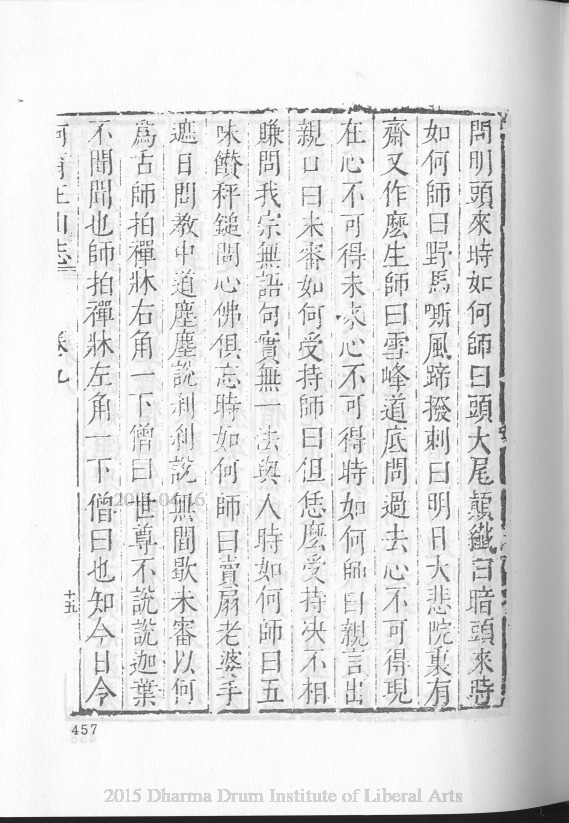 問明頭來時如何師曰頭大尾顛纖曰暗頭來時
如何師曰野馬嘶風蹄撥剌曰明日大悲院裏有
齋又作麼生師曰雪峰道底問過去心不可得現
在心不可得未來心不可得時如何師曰親言出
親口曰未審如何受持師曰但恁麼受持決不相
賺問我宗無語句實無一法與人時如何師曰五
味饡秤鎚問心佛俱忘時如何師曰賣扇老婆手
遮日問教中道塵塵說剎剎說無間歇未審以何
為舌師拍禪牀右角一下僧曰世尊不說說迦葉
不聞聞也師拍禪牀左角一下僧曰也知今日令
阿育王山志
卷九
十五
457
2015 Dharma Drum Institute of Liberal Arts